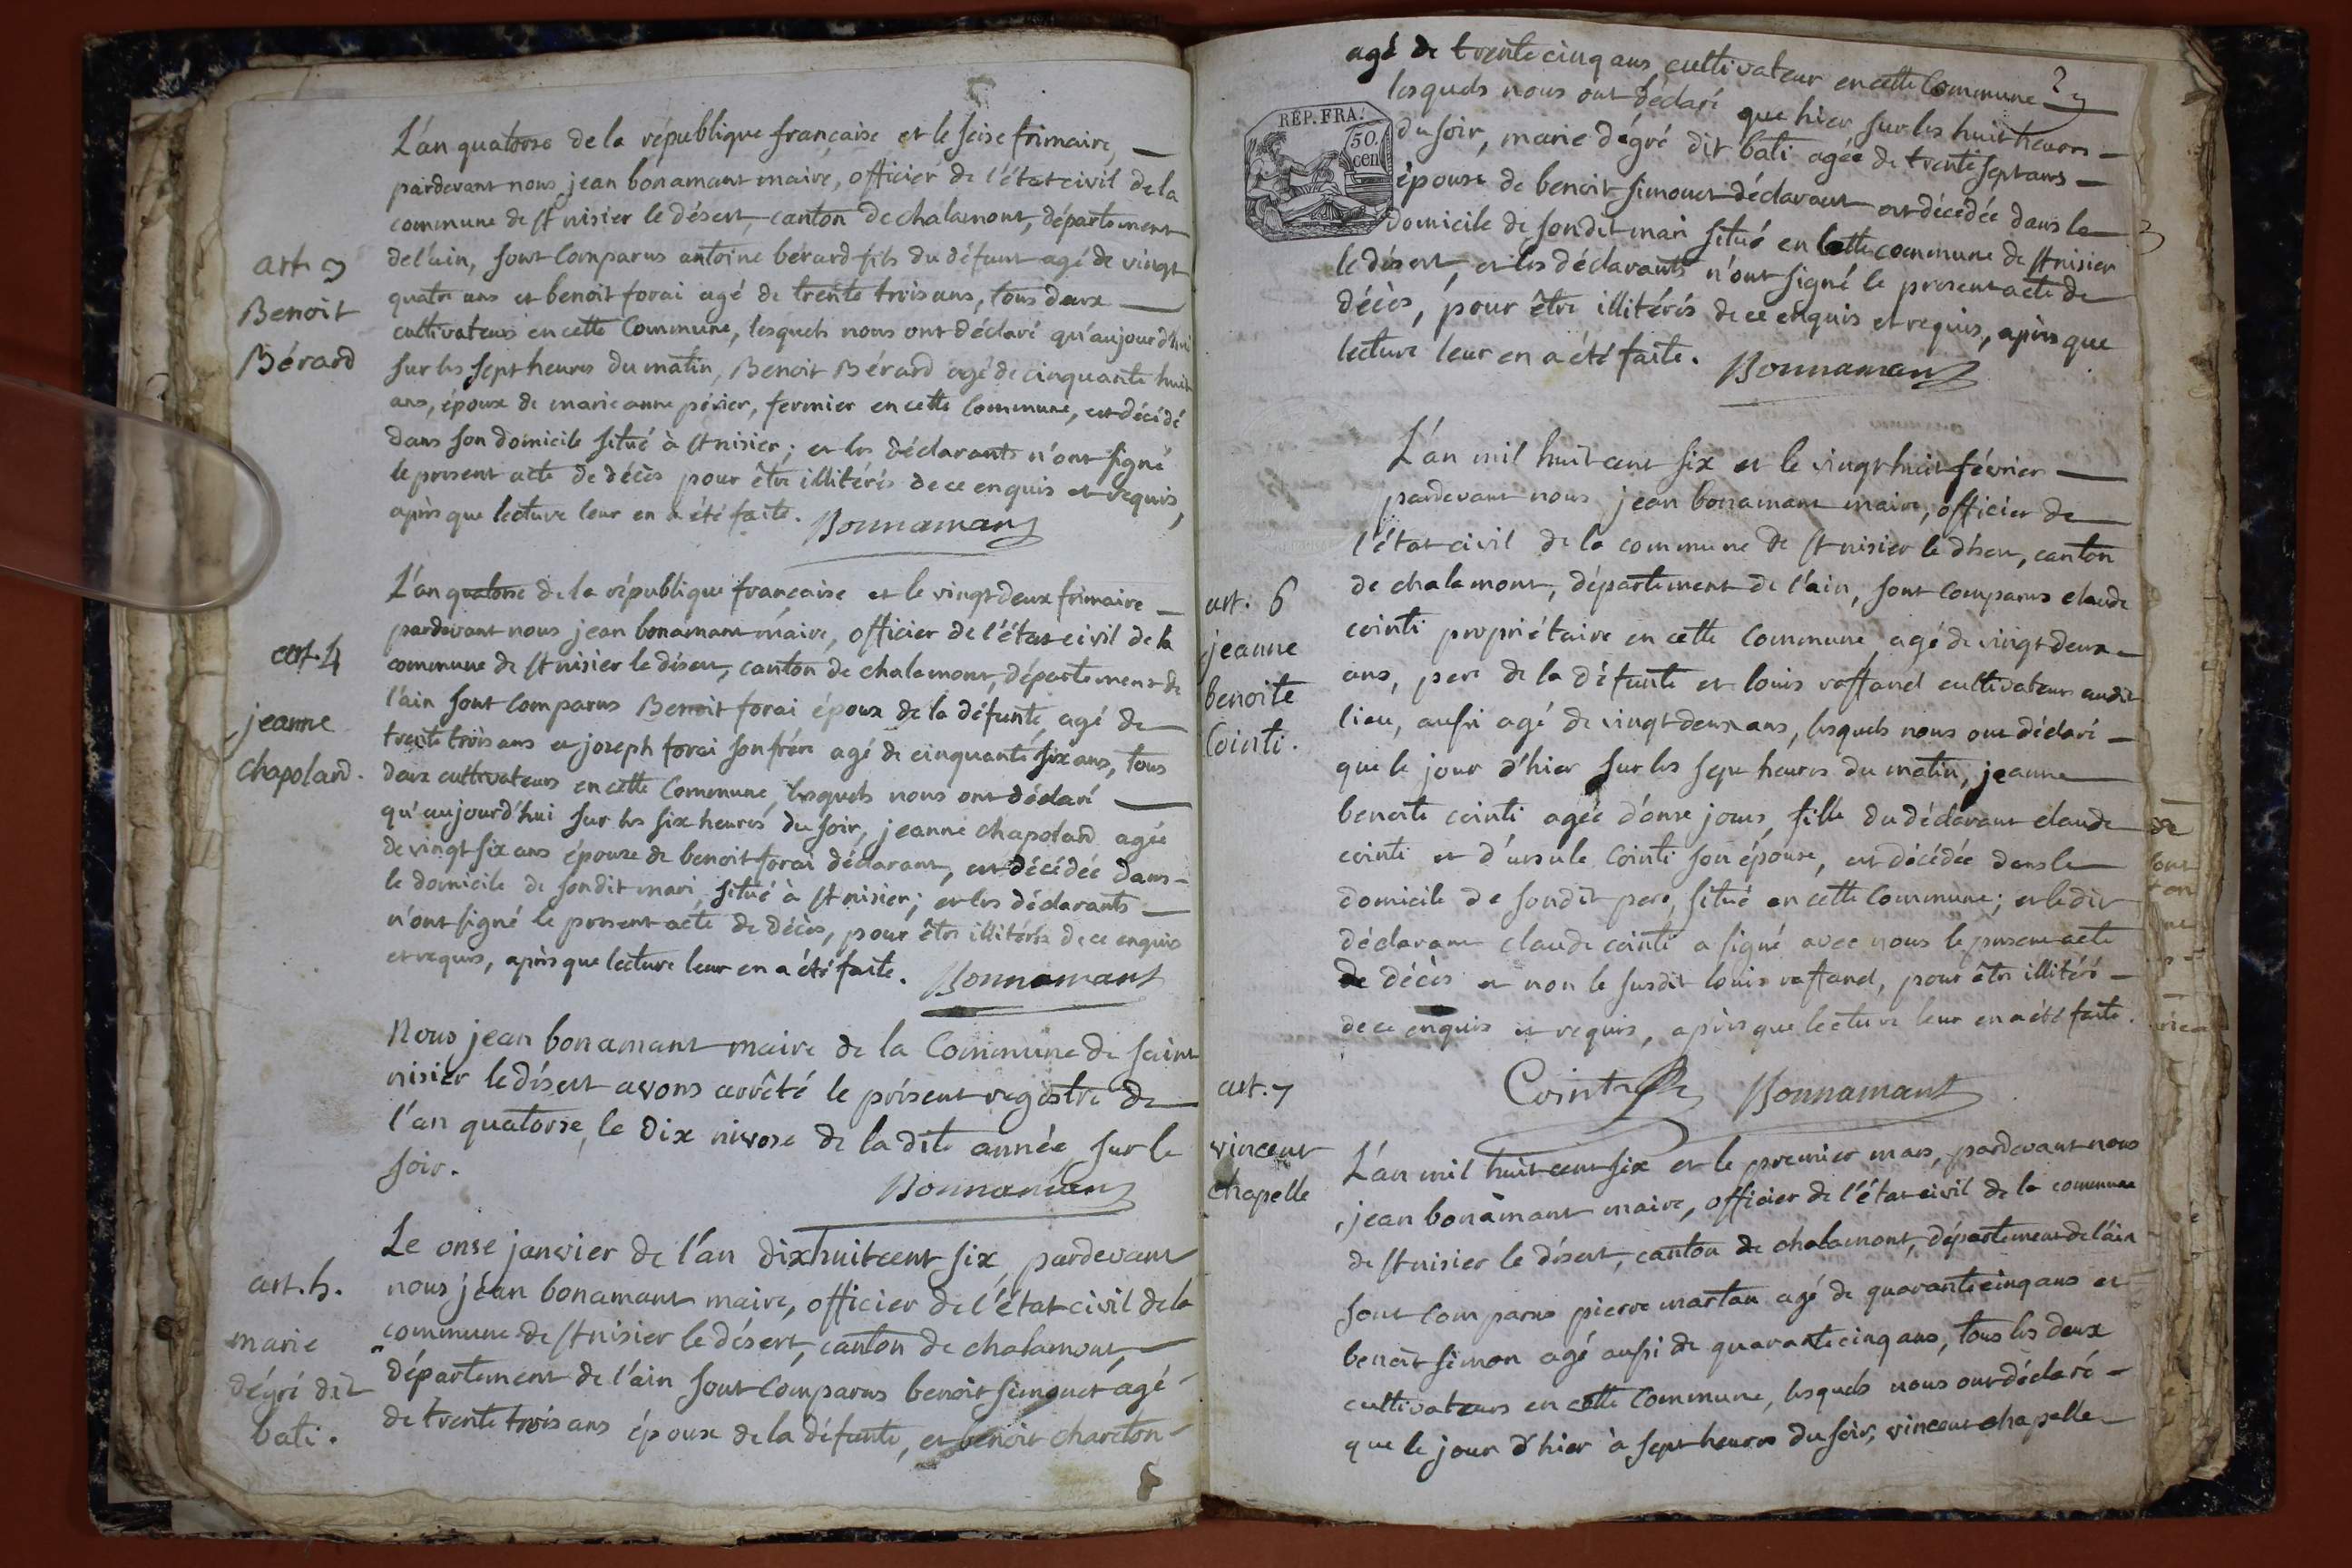 L'an quatorse de la république française et le seise frimaire,
pardevant nous jean bonamant maire, officier de l'état civil de la
commune de st nisier le désert, canton de chalamont, département
de l'ain, sont comparus antoine bérard fils du défunt agé de vingt
art. 3
quatre ans et benoit forai agé de trente trois ans, tous deux
Benoit
cultivateurs en cette commune, lesquels nous ont déclaré qu'aujourd'hui
Bérard
sur les sept heures du matin, Benoit Bérard agé de cinquante huit
ans, époux de marie anne périer, fermier en cette commune, est décédé
dans son domicile situé à st nisier; et les déclarants n'ont signé
le present acte de décès pour être illitérés de ce enquis et requis,
après que lecture leur en a été faite. Bonnamant
L'an quatorse de la république française et le vingt deux frimaire
pardevant nous jean bonamant maire, officier de l'état civil de la
art. 4
commune de st nisier le désert, canton de chalamont, département de
l'ain sont comparus Benoit forai époux de la défunte, agé de
jeanne
trente trois ans et joseph forai son frère agé de cinquante six ans, tous
chapoland.
deux cultivateurs en cette commune, lesquels nous ont déclaré
qu'aujourd'hui sur les six heures du soir, jeanne chapoland agée
de vingt six ans épouse de benoit forai déclarant, est décédée dans
le domicile de sondit mari, situé à st nisier; et les déclarants
n'ont signé le present acte de décès, pour être illitérés de ce enquis
et requis, après que lecture leur en a été faite. Bonnamant
Nous jean bonamant maire de la Commune de saint
nisier le désert avons arrêté le présent registre de
l'an quatorse, le dix nivose de la dite année, sur le
soir.
Bonnamant
Le onse janvier de l'an dixhuitcent six pardevant
art. 5.
nous jean bonamant maire, officier de l'état civil de la
marie
commune de st nisier le désert, canton de chalamont,
dégré dit
département de l'ain sont comparus benoit simonet agé
bati.
de trente trois ans époux de la défunte, et benoit chareton
agé de trente cinq ans, cultivateur en cette commune
lesquels nous ont déclaré que hier sur les huit heures
REP. FRA.
50.
cen
du soir, marie dégré dit bati agée de trente sept ans
épouse de benoit simonet déclarant est décédée dans le
domicile de sondit mari situé en cette commune de st nisier
le désert, et les déclarants n'ont signé le present acte de
décès, pour être illitérés de ce enquis et requis, après que
lecture leur en a été faite. Bonnamant
L'an mil huit cent six et le vingt huit février
pardevant nous jean bonamant maire, officier de
l'état civil de la commune de st nisier le désert, canton
art. 6
de chalamont, département de l'ain, sont comparus claude
jeanne
cointi propriétaire en cette commune agé de vingt deux
benoite
ans, pere de la défunte et louis raffand cultivateur audit
Cointi.
lieu, aussi agé de vingt deux ans, lesquels nous ont déclaré
que le jour d'hier sur les sept heures du matin, jeanne
benoite cointi agée d'onse jours, fille du déclarant claude
cointi et d'ursule Cointi son épouse, est décédée dans le
domicile de sondit pere, situé en cette commune; et ledit
déclarant claude cointi a signé avec nous le present acte
de décès et non le susdit louis raffand, pour être illitéré
de ce enquis et requis, après que lecture leur en a été faite.
Bonnamant
art. 7
vincent
chapelle
L'an mil huit cent six et le premier mars, pardevant nous
jean bonamant maire, officier de l'état civil de la commune
de st nisier le désert, canton de chalamont, département de l'ain
sont comparus pierre martau agé de quarante cinq ans et
benoit simon agé aussi de quarante cinq ans, tous les deux
cultivateurs en cette commune, lesquels nous ont déclaré
que le jour d'hier à sept heures du soir, vincent chapelle